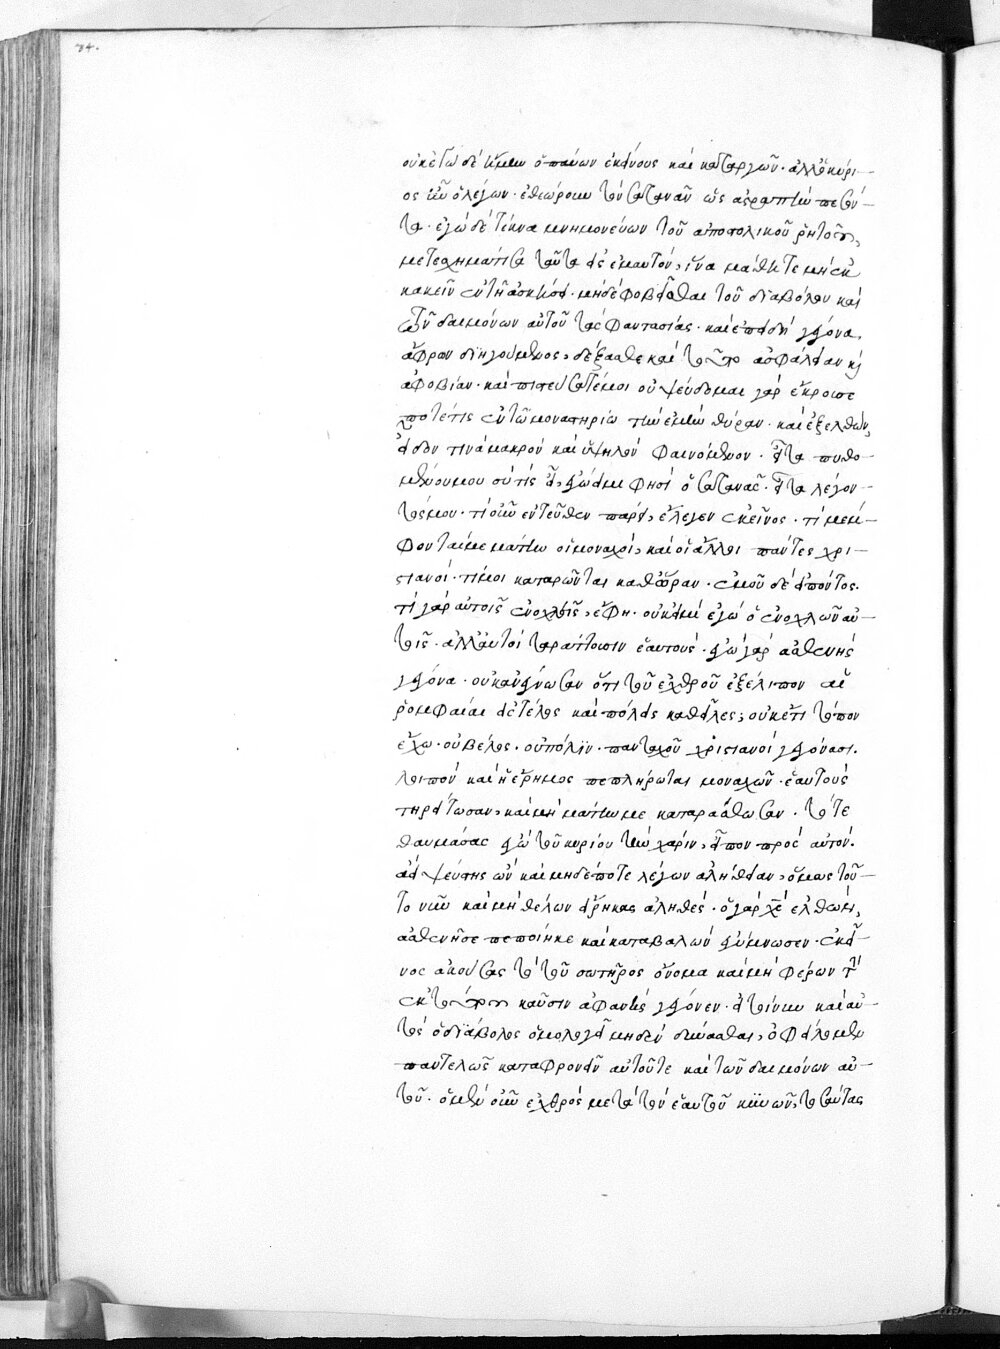 34.
οὐκ ἐγὼ δὲ ἤμην ὁ παύων ἐκείνους καὶ καταργῶν· ἀλλ' ὁ κύρι-
ος ἦν ὁ λέγων· ἐθεώρουν τὸν σατανᾶν ὡς ἀστραπὴν πεσόν-
τα· ἐγὼ δὲ τέκνα μνημονεύων τοῦ ἀποστολικοῦ ῥητοῦ,
μετεσχημάτισα ταῦτα εἰς ἐμαυτόν, ἵνα μάθητε μὴ ἐκ-
κακεῖν ἐν τῇ ἀσκήσει· μηδὲ φοβεῖσθαι τοῦ διαβόλου καὶ
τῶν δαιμόνων αὐτοῦ τὰς φαντασίας· καὶ ἐπειδὴ γέγονα
ἄφρων διηγούμενος, δέξασθε καὶ τοῦτο εἰς ἀσφάλειαν καὶ
ἀφοβίαν· καὶ πιστεύσατέ μοι οὐ ψεύδομαι γάρ ἔκρουσέ
ποτέ τις ἐν τῷ μοναστηρίῳ τὴν ἐμὴν θύραν· καὶ ἐξελθὼν,
εἶδον τινὰ μακρὸν καὶ ὑψηλὸν φαινόμενον· εἶτα πυθο-
μένου μου σὺ τίς εἶ, ἐγώ εἰμι φησὶ ὁ σατανᾶς· εἶτα λέγον-
τός μου· τί οὖν ἐνταῦθεν πάρει, ἔλεγεν ἐκεῖνος· τί μέμ-
φονταί με μάτην οἱ μοναχοὶ, καὶ οἱ ἄλλοι πάντες χρι-
στιανοί· τί μοι καταρῶνται καθ' ὥραν· ἐμοῦ δὲ εἰπόντος.
τί γὰρ αὐτοῖς ἐνοχλεῖς, ἔφη· οὐκ εἰμὶ ἐγὼ ὁ ἐνοχλῶν αὐ-
τοῖς· ἀλλ' αὐτοὶ ταράττουσιν ἑαυτούς· ἐγὼ γὰρ ἀσθενὴς
γέγονα· οὐκ ἀνέγνωσαν ὅτι τοῦ ἐχθροῦ ἐξέλιπον αἱ
ῥομφαῖαι εἰς τέλος καὶ πόλεις καθεῖλες; οὐκέτι τόπον
ἔχω· οὐ βέλος· οὐ πόλιν· πανταχοῦ χριστιανοὶ γεγόνασι.
λοιπὸν καὶ ἡ ἔρημος πεπλήρωται μοναχῶν· ἑαυτοὺς
τηρείτωσαν, καὶ μὴ μάτην με καταράσθωσαν· τότε
θαυμάσας ἐγὼ τοῦ κυρίου τὴν χάριν, εἶπον πρὸς αὐτόν·
ἀεὶ ψεύστης ὢν καὶ μηδέποτε λέγων ἀλήθειαν, ὅμως τοῦ-
το νῦν καὶ μὴ θέλων εἴρηκας ἀληθές· ὁ γὰρ χς ἐλθὼν,
ἀσθενῆ σε πεποίηκε καὶ καταβαλὼν ἐγύμνωσεν· ἐκεῖ-
νος ἀκούσας τὸ τοῦ σωτῆρος ὄνομα καὶ μὴ φέρων τὴν
ἐκ τούτου καῦσιν ἀφανὴς γέγονεν· εἰ τοίνυν καὶ αὐ-
τὸς ὁ διάβολος ὁμολογεῖ μηδὲν δύνασθαι, ὀφείλομεν
παντελῶς καταφρονεῖν αὐτοῦ τε καὶ τῶν δαιμόνων αὐ-
τοῦ· ὁ μὲν οὖν ἐχθρὸς μετὰ τῶν ἑαυτοῦ κυνῶν, τοσαύτας